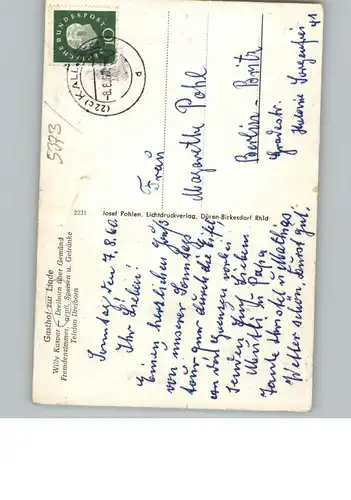 DEUTSCHE BUNDESPOST
10
(22c) KALL
-8.8.60
a
5373
Frau
Margarethe Pohl
Berlin-Britz
Gradestr.
Kolonie Sorgenfrei
41
2231 Josef Pohlen, Lichtdruckverlag, Düren-Birkesdorf Rhld
Gasthof zur Linde
Willy Kaspar - Dreiborn über Gemünd
Fremdenzimmer, gepfl. Speisen u. Getränke
Telefon Dreiborn
Sonntag den 7.8.60.
Ihr Lieben!
Einen herzlichen Gruß
von unserer Sonntags
tour quer durch die Eifel
an der Grenze
senden Euch Lieben
Mutti u. Papa
Tante Christel u. Mathias
Wetter schön, Durst gut.